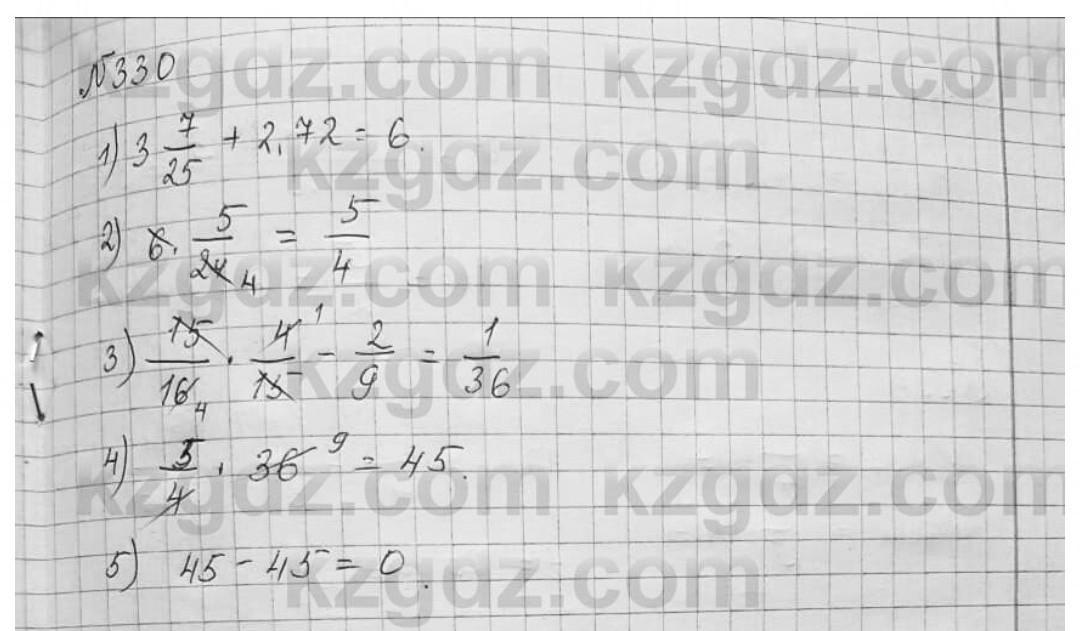 №330
1) 3 7/25 + 2,72 = 6.
2) 6 · 5/24 4 = 5/4
3) 15/16 4 · 4 1/15 - 2/9 = 1/36
4) 5/4 · 36 9 = 45.
5) 45 - 45 = 0.
kzgdz.com kzgdz.com
kzgdz.com
kzgdz.com kzgdz.com
kzgdz.com
kzgdz.com kzgdz.com
kzgdz.com